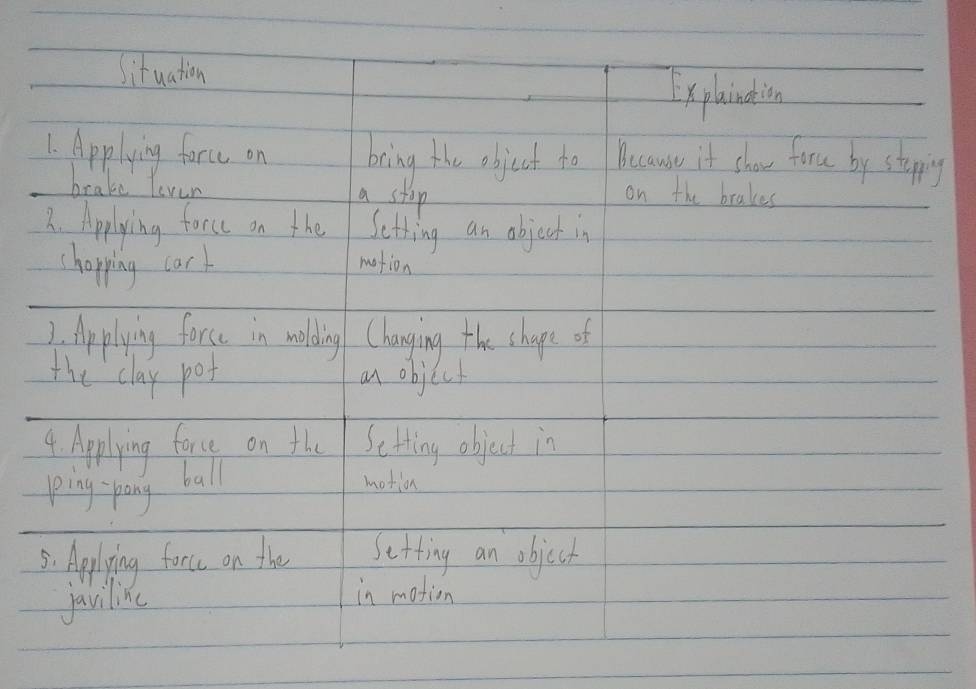 Situation
Explaination
1. Applying force on
brake lever
bring the object to
a stop
Because it show force by stepping
on the brakes
2. Applying force on the
shopping cart
Setting an object in
motion
3. Applying force in molding
the clay pot
Changing the shape of
an object
4. Applying force on the
ping-pong ball
Setting object in
motion
5. Applying force on the
javiline
Setting an object
in motion